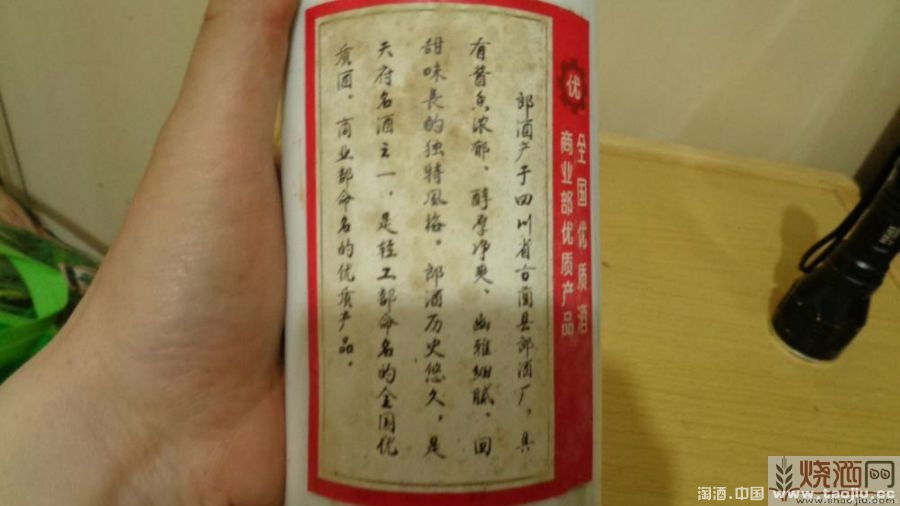 优
全国优质酒
商业部优质产品
郎酒产于四川省古蔺县郎酒厂，具
有酱香浓郁、醇厚净爽、幽雅细腻、回
甜味長的独特風格。郎酒历史悠久，是
天府名酒之一，是轻工部命名的全国优
质酒，商业部命名的优质产品。
淘酒.中国 www.taojiu.cc
烧酒网
www.shaojiu.com